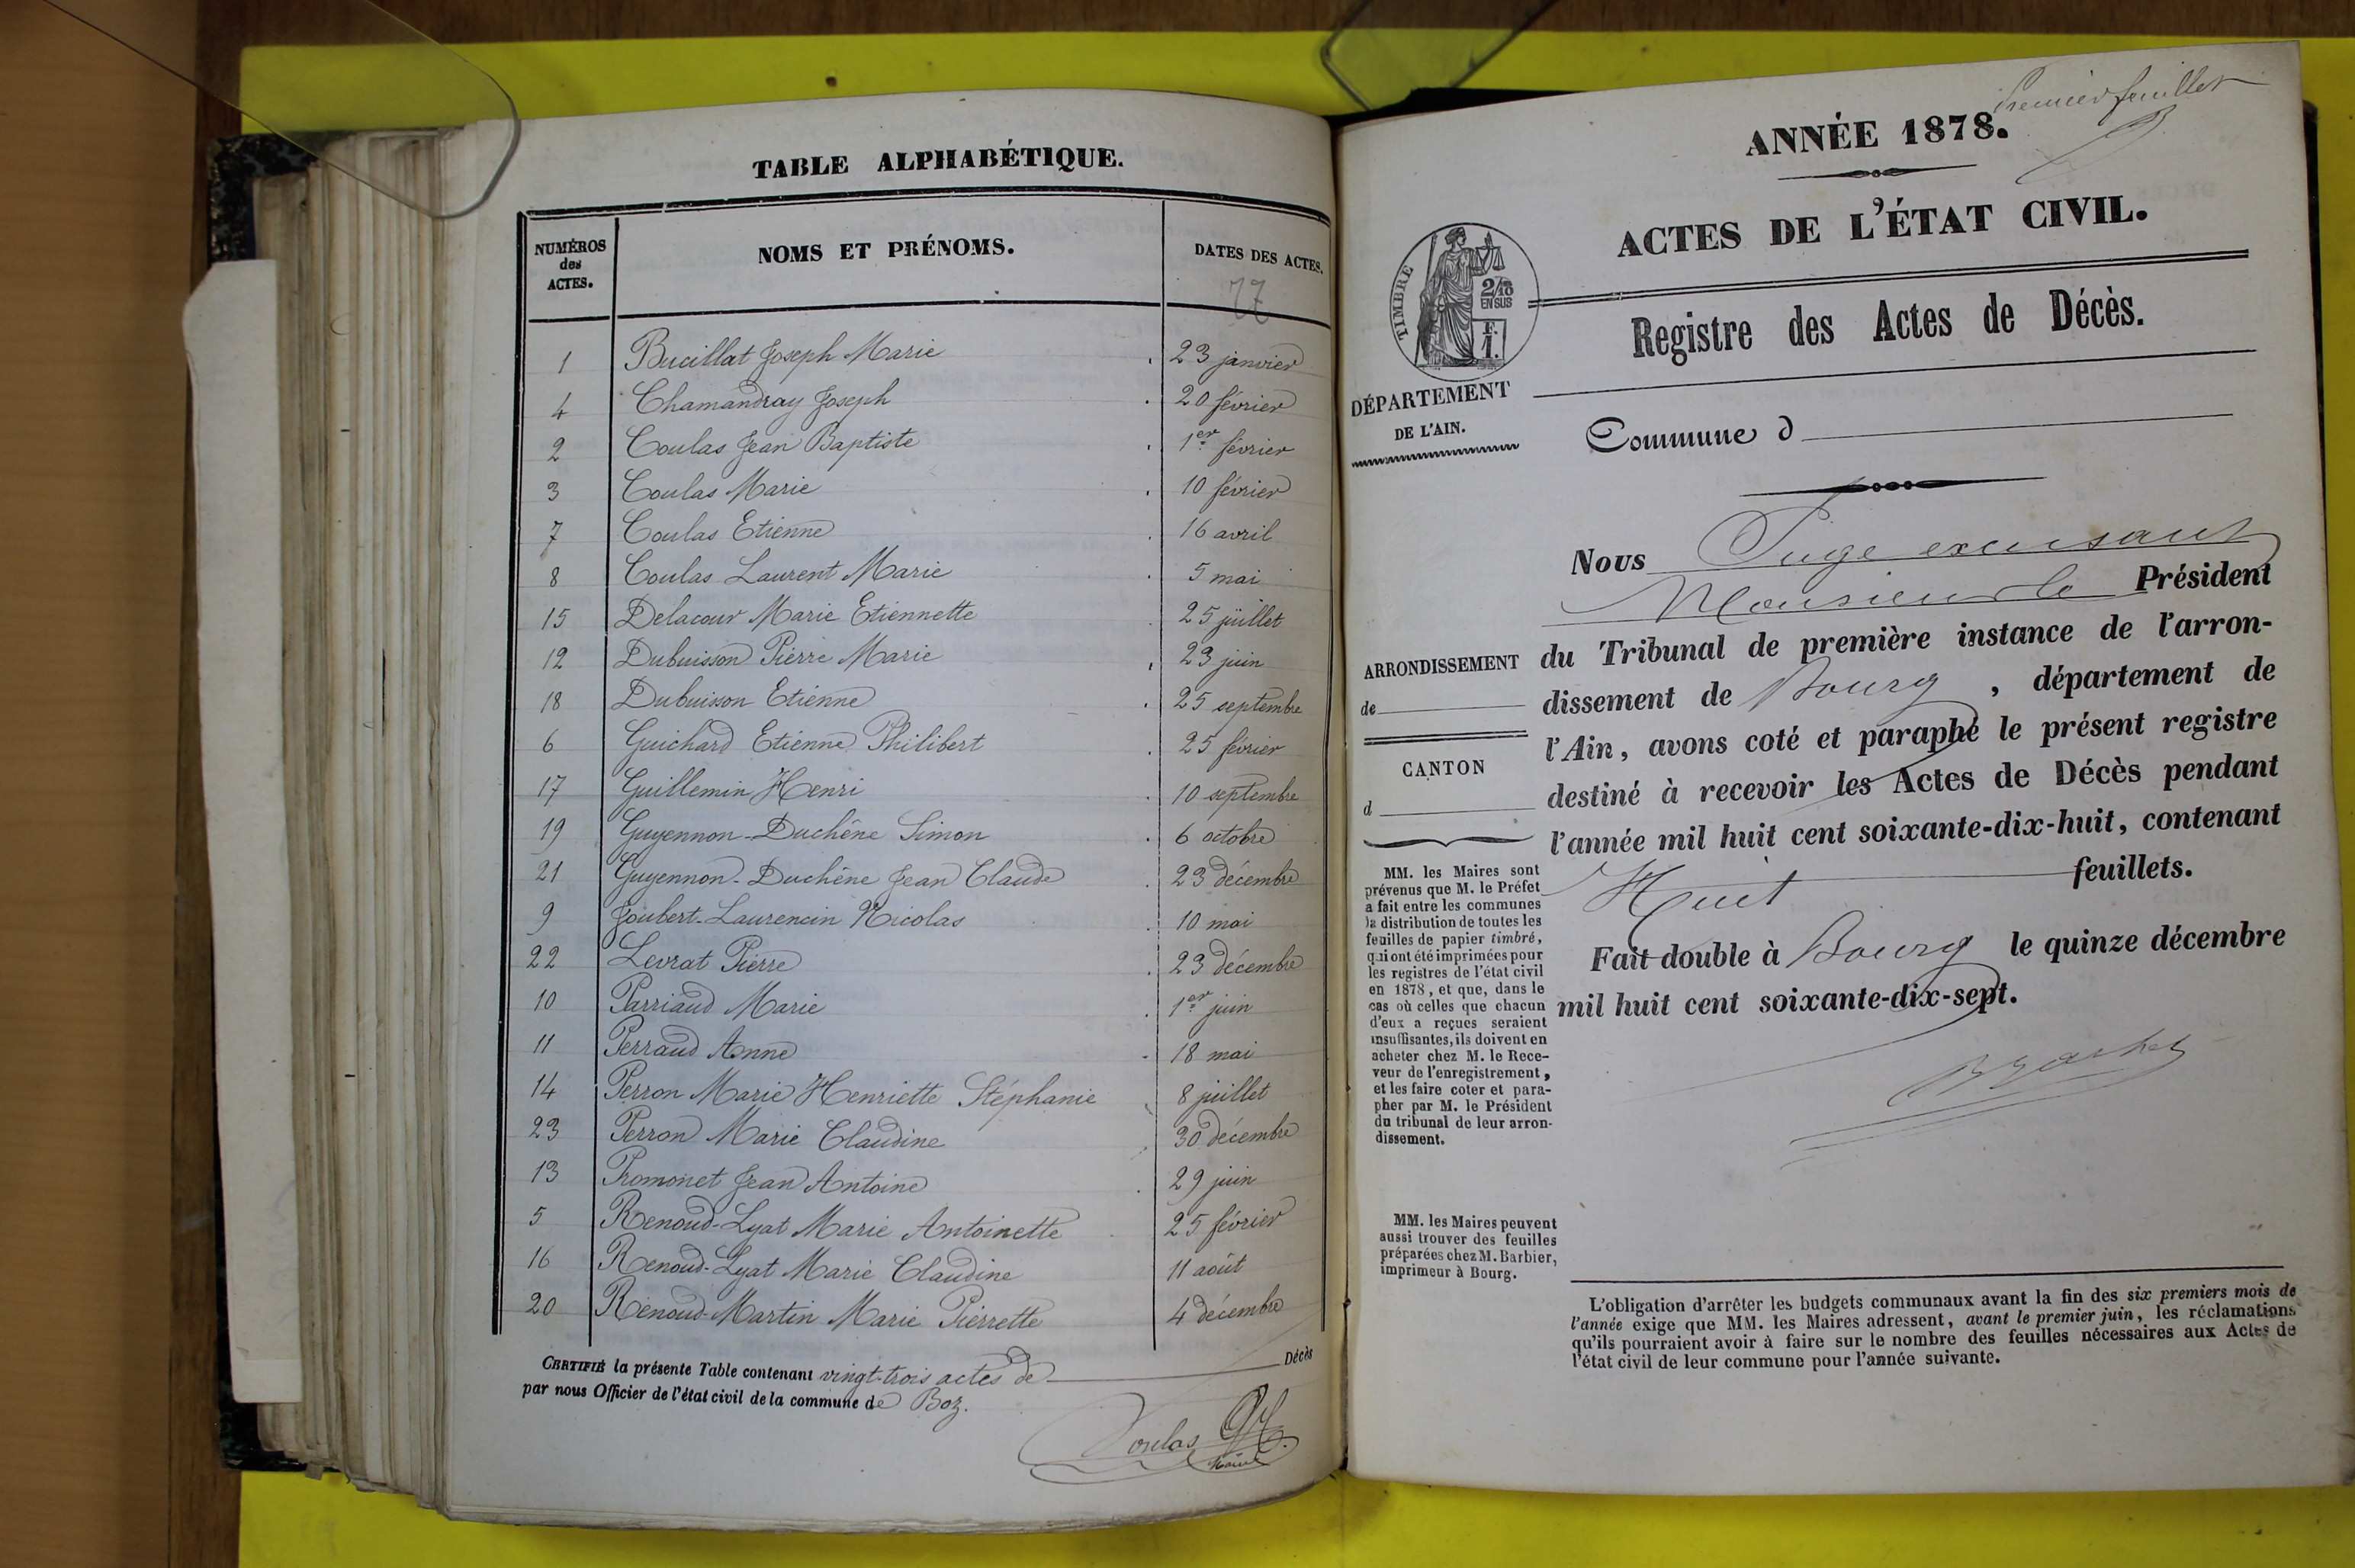 TABLE ALPHABÉTIQUE.
NUMÉROS des ACTES.
NOMS ET PRÉNOMS.
DATES DES ACTES.
77
1 Bucillat Joseph Marie 23 janvier
4 Chamandray Joseph 20 février
2 Coulas Jean Baptiste 1er février
3 Coulas Marie 10 février
7 Coulas Etienne 16 avril
8 Coulas Laurent Marie 5 mai
15 Delacour Marie Etiennette 25 juillet
12 Dubuisson Pierre Marie 23 juin
18 Dubuisson Etienne 25 septembre
6 Guichard Etienne Philibert 25 février
17 Guillemin Henri 10 septembre
19 Guyennon-Duchêne Simon 6 octobre
21 Guyennon-Duchêne Jean Claude 23 décembre
9 Joubert-Laurencin Nicolas 10 mai
22 Levrat Pierre 23 décembre
10 Parriaud Marie 1er juin
11 Perraud Anne 18 mai
14 Perron Marie Henriette Stéphanie 8 juillet
23 Perron Marie Claudine 30 décembre
13 Promonet Jean Antoine 29 juin
5 Renoud-Lyat Marie Antoinette 25 février
16 Renoud-Lyat Marie Claudine 11 août
20 Renoud-Martin Marie Pierrette 4 décembre
CERTIFIÉ la présente Table contenant vingt-trois actes de Décès
par nous Officier de l'état civil de la commune de Boz.
Coulas
Maire
Premier feuillet
ANNÉE 1878.
ACTES DE L'ÉTAT CIVIL.
TIMBRE
2/10
EN SUS
Registre des Actes de Décès.
DÉPARTEMENT
DE L'AIN.
Commune d
Nous Juge excusant
Monsieur le Président
du Tribunal de première instance de l'arron-
dissement de Bourg, département de
l'Ain, avons coté et paraphé le présent registre
destiné à recevoir les Actes de Décès pendant
l'année mil huit cent soixante-dix-huit, contenant
Huit feuillets.
Fait double à Bourg le quinze décembre
mil huit cent soixante-dix-sept.
ARRONDISSEMENT
de
CANTON
d
MM. les Maires sont
prévenus que M. le Préfet
a fait entre les communes
la distribution de toutes les
feuilles de papier timbré,
qui ont été imprimées pour
les registres de l'état civil
en 1878, et que, dans le
cas où celles que chacun
d'eux a reçues seraient
insuffisantes, ils doivent en
acheter chez M. le Rece-
veur de l'enregistrement,
et les faire coter et para-
pher par M. le Président
du tribunal de leur arron-
dissement.
MM. les Maires peuvent
aussi trouver des feuilles
préparées chez M. Barbier,
imprimeur à Bourg.
L'obligation d'arrêter les budgets communaux avant la fin des six premiers mois de
l'année exige que MM. les Maires adressent, avant le premier juin, les réclamations
qu'ils pourraient avoir à faire sur le nombre des feuilles nécessaires aux Actes de
l'état civil de leur commune pour l'année suivante.